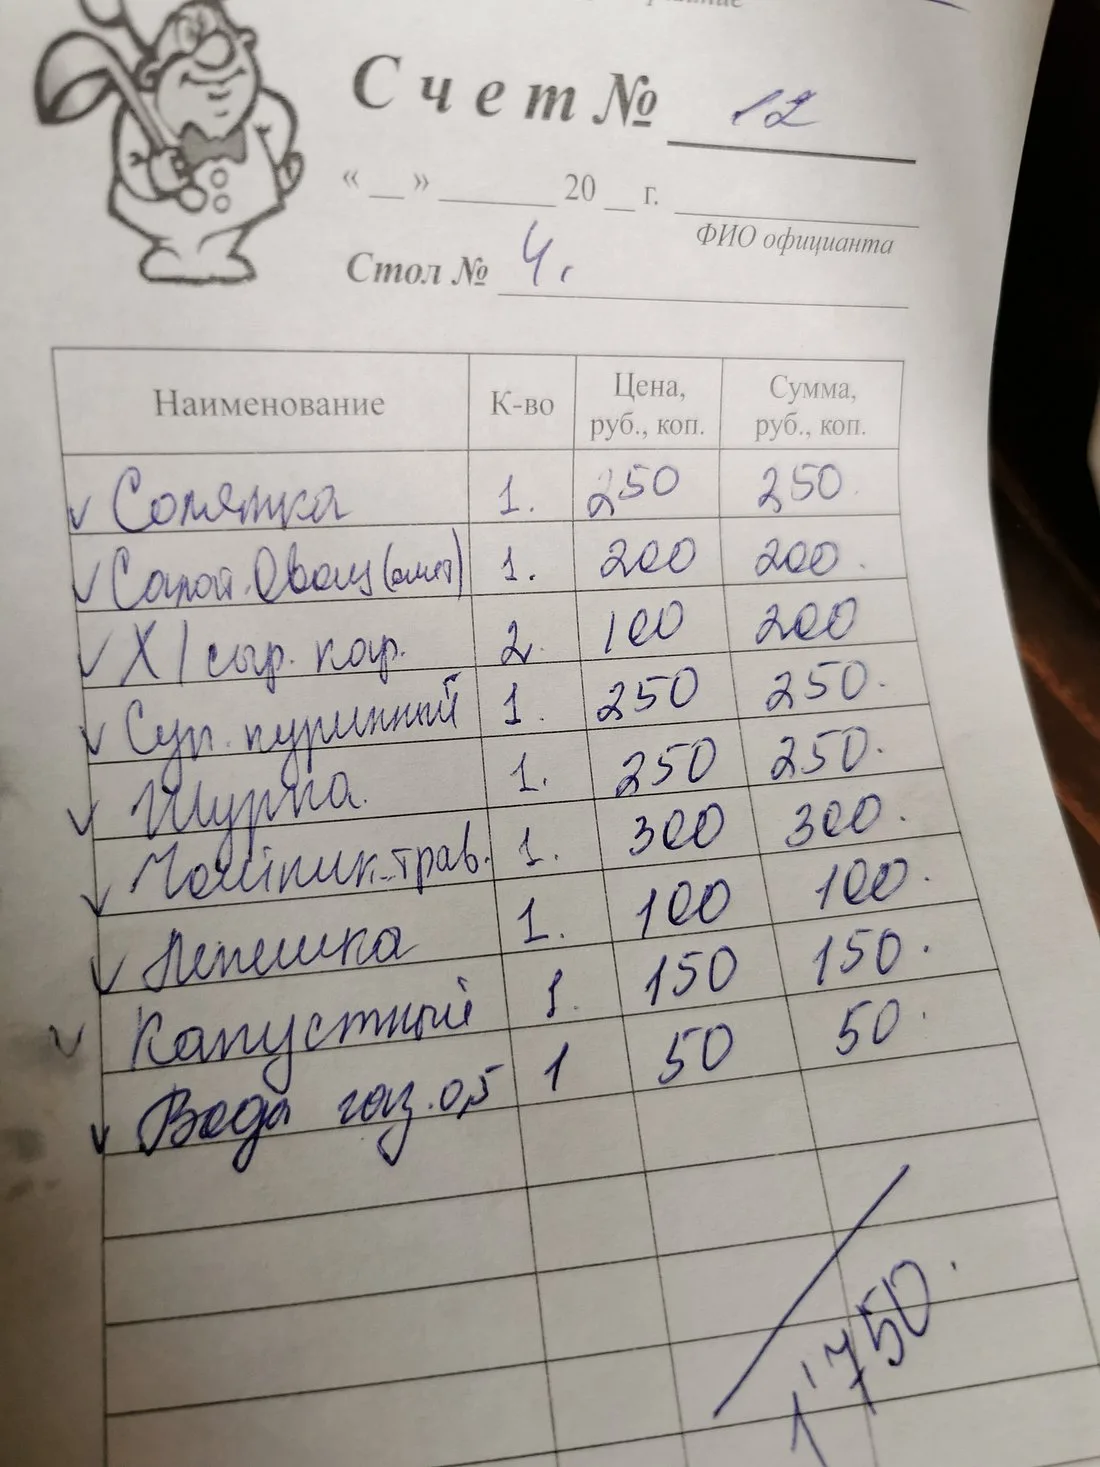 Счет № 12
« __ » ______ 20 __ г.
ФИО официанта
Стол № 4.
Наименование К-во Цена, руб., коп. Сумма, руб., коп.
Солянка 1. 250 250.
Салат. Овощ (омет) 1. 200 200.
Х/сыр. кар. 2. 100 200
Суп. куринный 1. 250 250.
Шурпа. 1. 250 250.
Чайник трав. 1. 300 300.
Лепешка 1. 100 100.
Капустный 1. 150 150.
Вода газ. 0,5 1 50 50.
1'750.